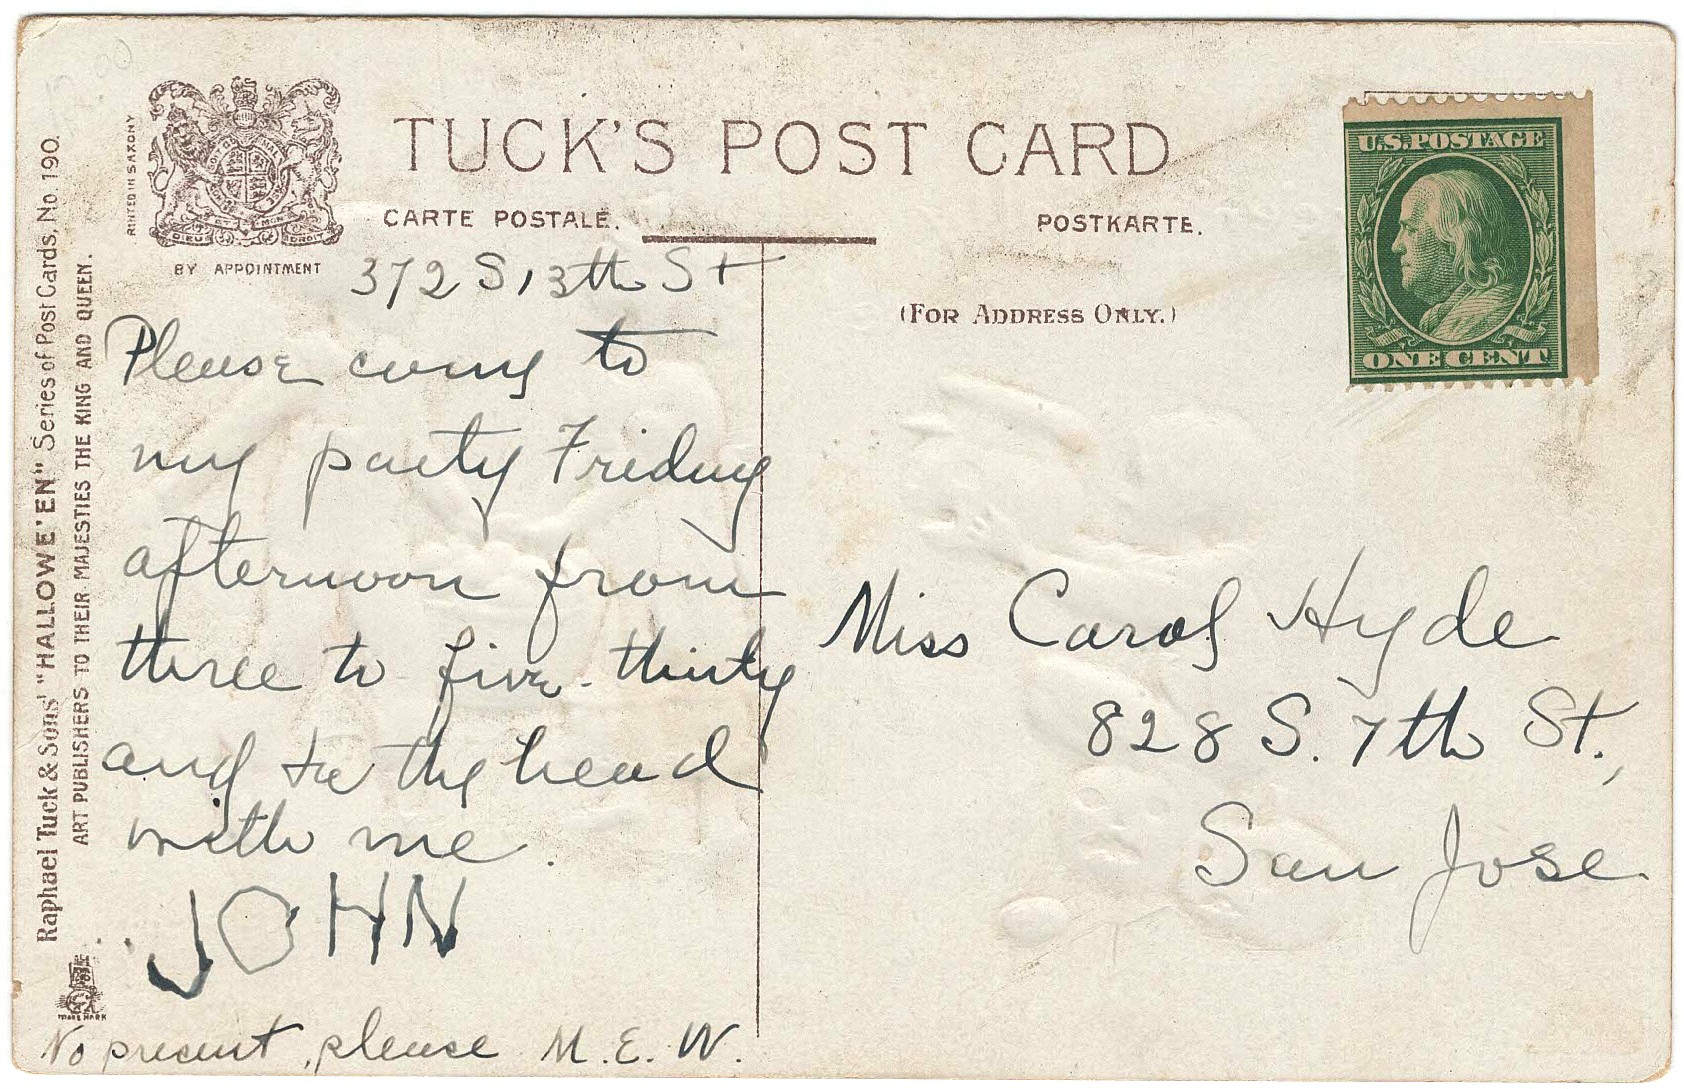 Raphael Tuck & Sons' "HALLOWE'EN" Series of Post Cards, No. 190.
ART PUBLISHERS TO THEIR MAJESTIES THE KING AND QUEEN.
PRINTED IN SAXONY
DIEU ET MON DROIT
BY APPOINTMENT
TRADE MARK
TUCK'S POST CARD
CARTE POSTALE.
POSTKARTE.
(FOR ADDRESS ONLY.)
U.S. POSTAGE
ONE CENT
372 S 13th St
Please come to
my party Friday
afternoon from
three to five-thirty
and the head
with me.
JOHN
No present, please M. E. W.
Miss Carol Hyde
828 S. 7th St.,
San Jose